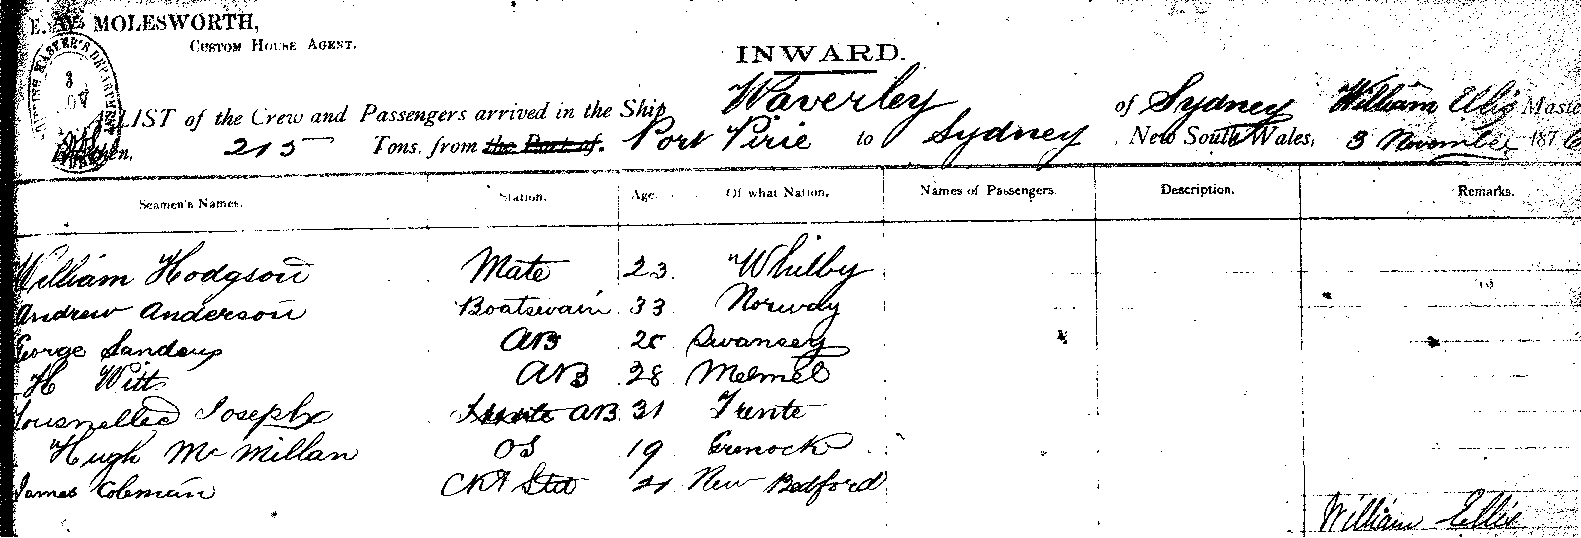 MOLESWORTH,
CUSTOM HOUSE AGENT.
INWARD.
LIST of the Crew and Passengers arrived in the Ship Waverley of Sydney William Ellis Maste
215 Tons, from the Port of. Port Pirie to Sydney New South Wales, 3 November 1876
Seamen's Names. Station. Age. Of what Nation. Names of Passengers. Description. Remarks.
William Hodgson Mate 23 Whilby
Andrew Anderson Boatswain 33 Norway
George Sanders AB 25 Swansey
H Witt AB 28 Memel
Joseph AB 31 Trente
Hugh McMillan OS 19 Grenock
James Coleman Ck & Std 21 New Bedford
William Ellis